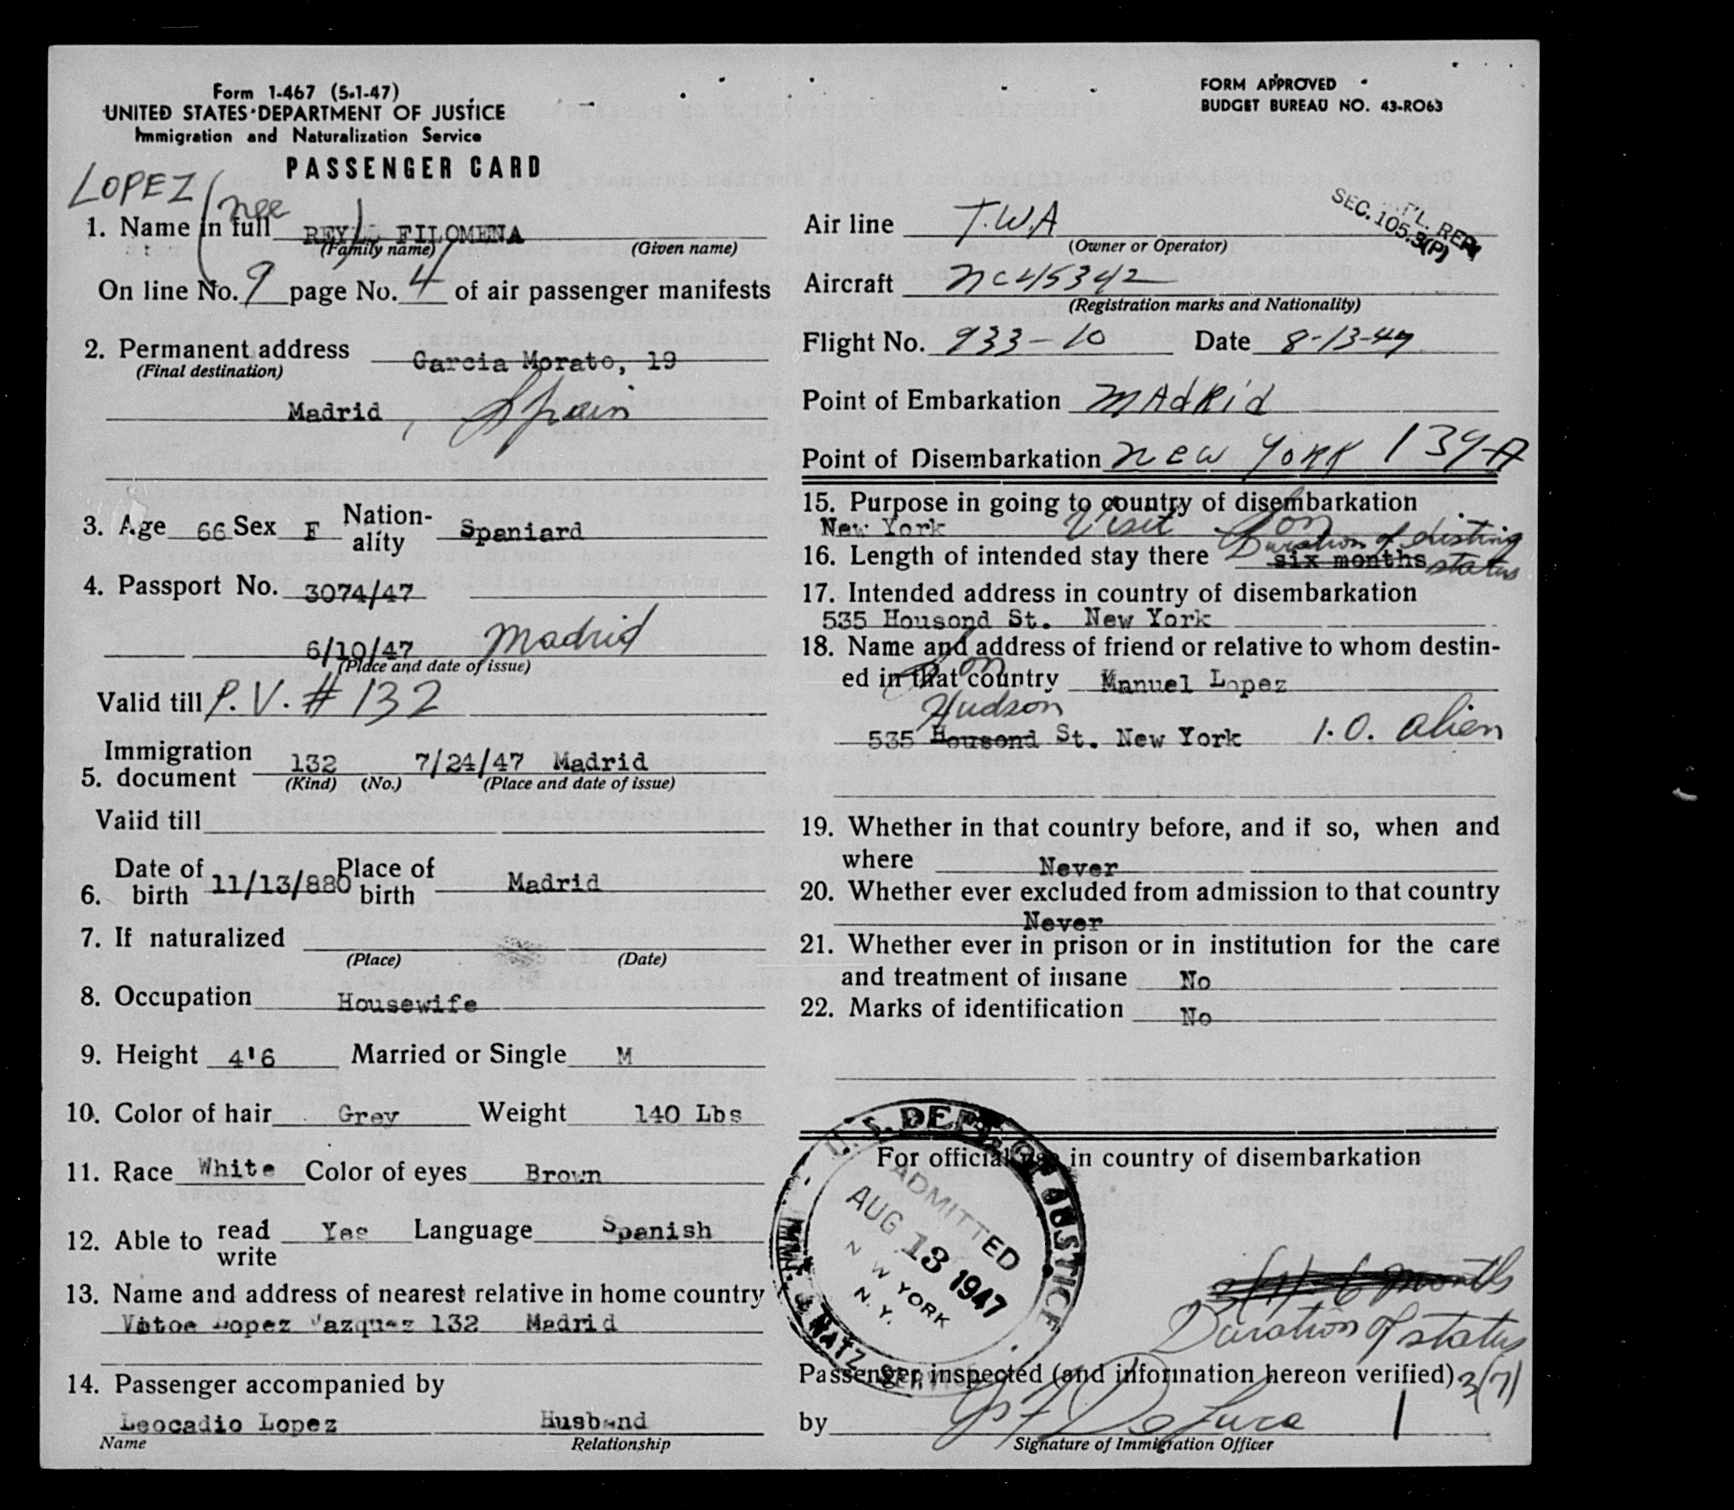 Form 1-467 (5-1-47)
UNITED STATES DEPARTMENT OF JUSTICE
Immigration and Naturalization Service
PASSENGER CARD
FORM APPROVED
BUDGET BUREAU NO. 43-RO63
LOPEZ / nee
1. Name in full REYL FILOMENA
(Family name) (Given name)
On line No. 9 page No. 4 of air passenger manifests
2. Permanent address Garcia Morato, 19
(Final destination)
Madrid, Spain
3. Age 66 Sex F Nation-ality Spaniard
4. Passport No. 3074/47
6/10/47 Madrid
(Place and date of issue)
Valid till P.V. # 132
5. Immigration document 132 7/24/47 Madrid
(Kind) (No.) (Place and date of issue)
Valid till
6. Date of birth 11/13/880 Place of birth Madrid
7. If naturalized
(Place) (Date)
8. Occupation Housewife
9. Height 4'6 Married or Single M
10. Color of hair Grey Weight 140 Lbs
11. Race White Color of eyes Brown
12. Able to read write Yes Language Spanish
13. Name and address of nearest relative in home country
Lopez Vazquez 132 Madrid
14. Passenger accompanied by
Leocadio Lopez Husband
Name Relationship
Air line T.W.A
(Owner or Operator)
SEC. 105.3(P)
Aircraft NC45342
(Registration marks and Nationality)
Flight No. 933-10 Date 8-13-47
Point of Embarkation MAdRid
Point of Disembarkation New York 139-A
15. Purpose in going to country of disembarkation
New York Visit Son
16. Length of intended stay there six months Duration of status
17. Intended address in country of disembarkation
535 Housond St. New York
18. Name and address of friend or relative to whom destin-
ed in that country Son Manuel Lopez
Hudson
535 Housond St. New York 1.O. alien
19. Whether in that country before, and if so, when and
where Never
20. Whether ever excluded from admission to that country
Never
21. Whether ever in prison or in institution for the care
and treatment of insane No
22. Marks of identification No
For official use in country of disembarkation
U.S. DEPT. OF JUSTICE
IMMI. & NATZ. SERVICE
ADMITTED
AUG 13 1947
N W YORK
N.Y.
3(1) 6 months
Duration of status
Passenger inspected (and information hereon verified) 3(7)
by De Luca
Signature of Immigration Officer